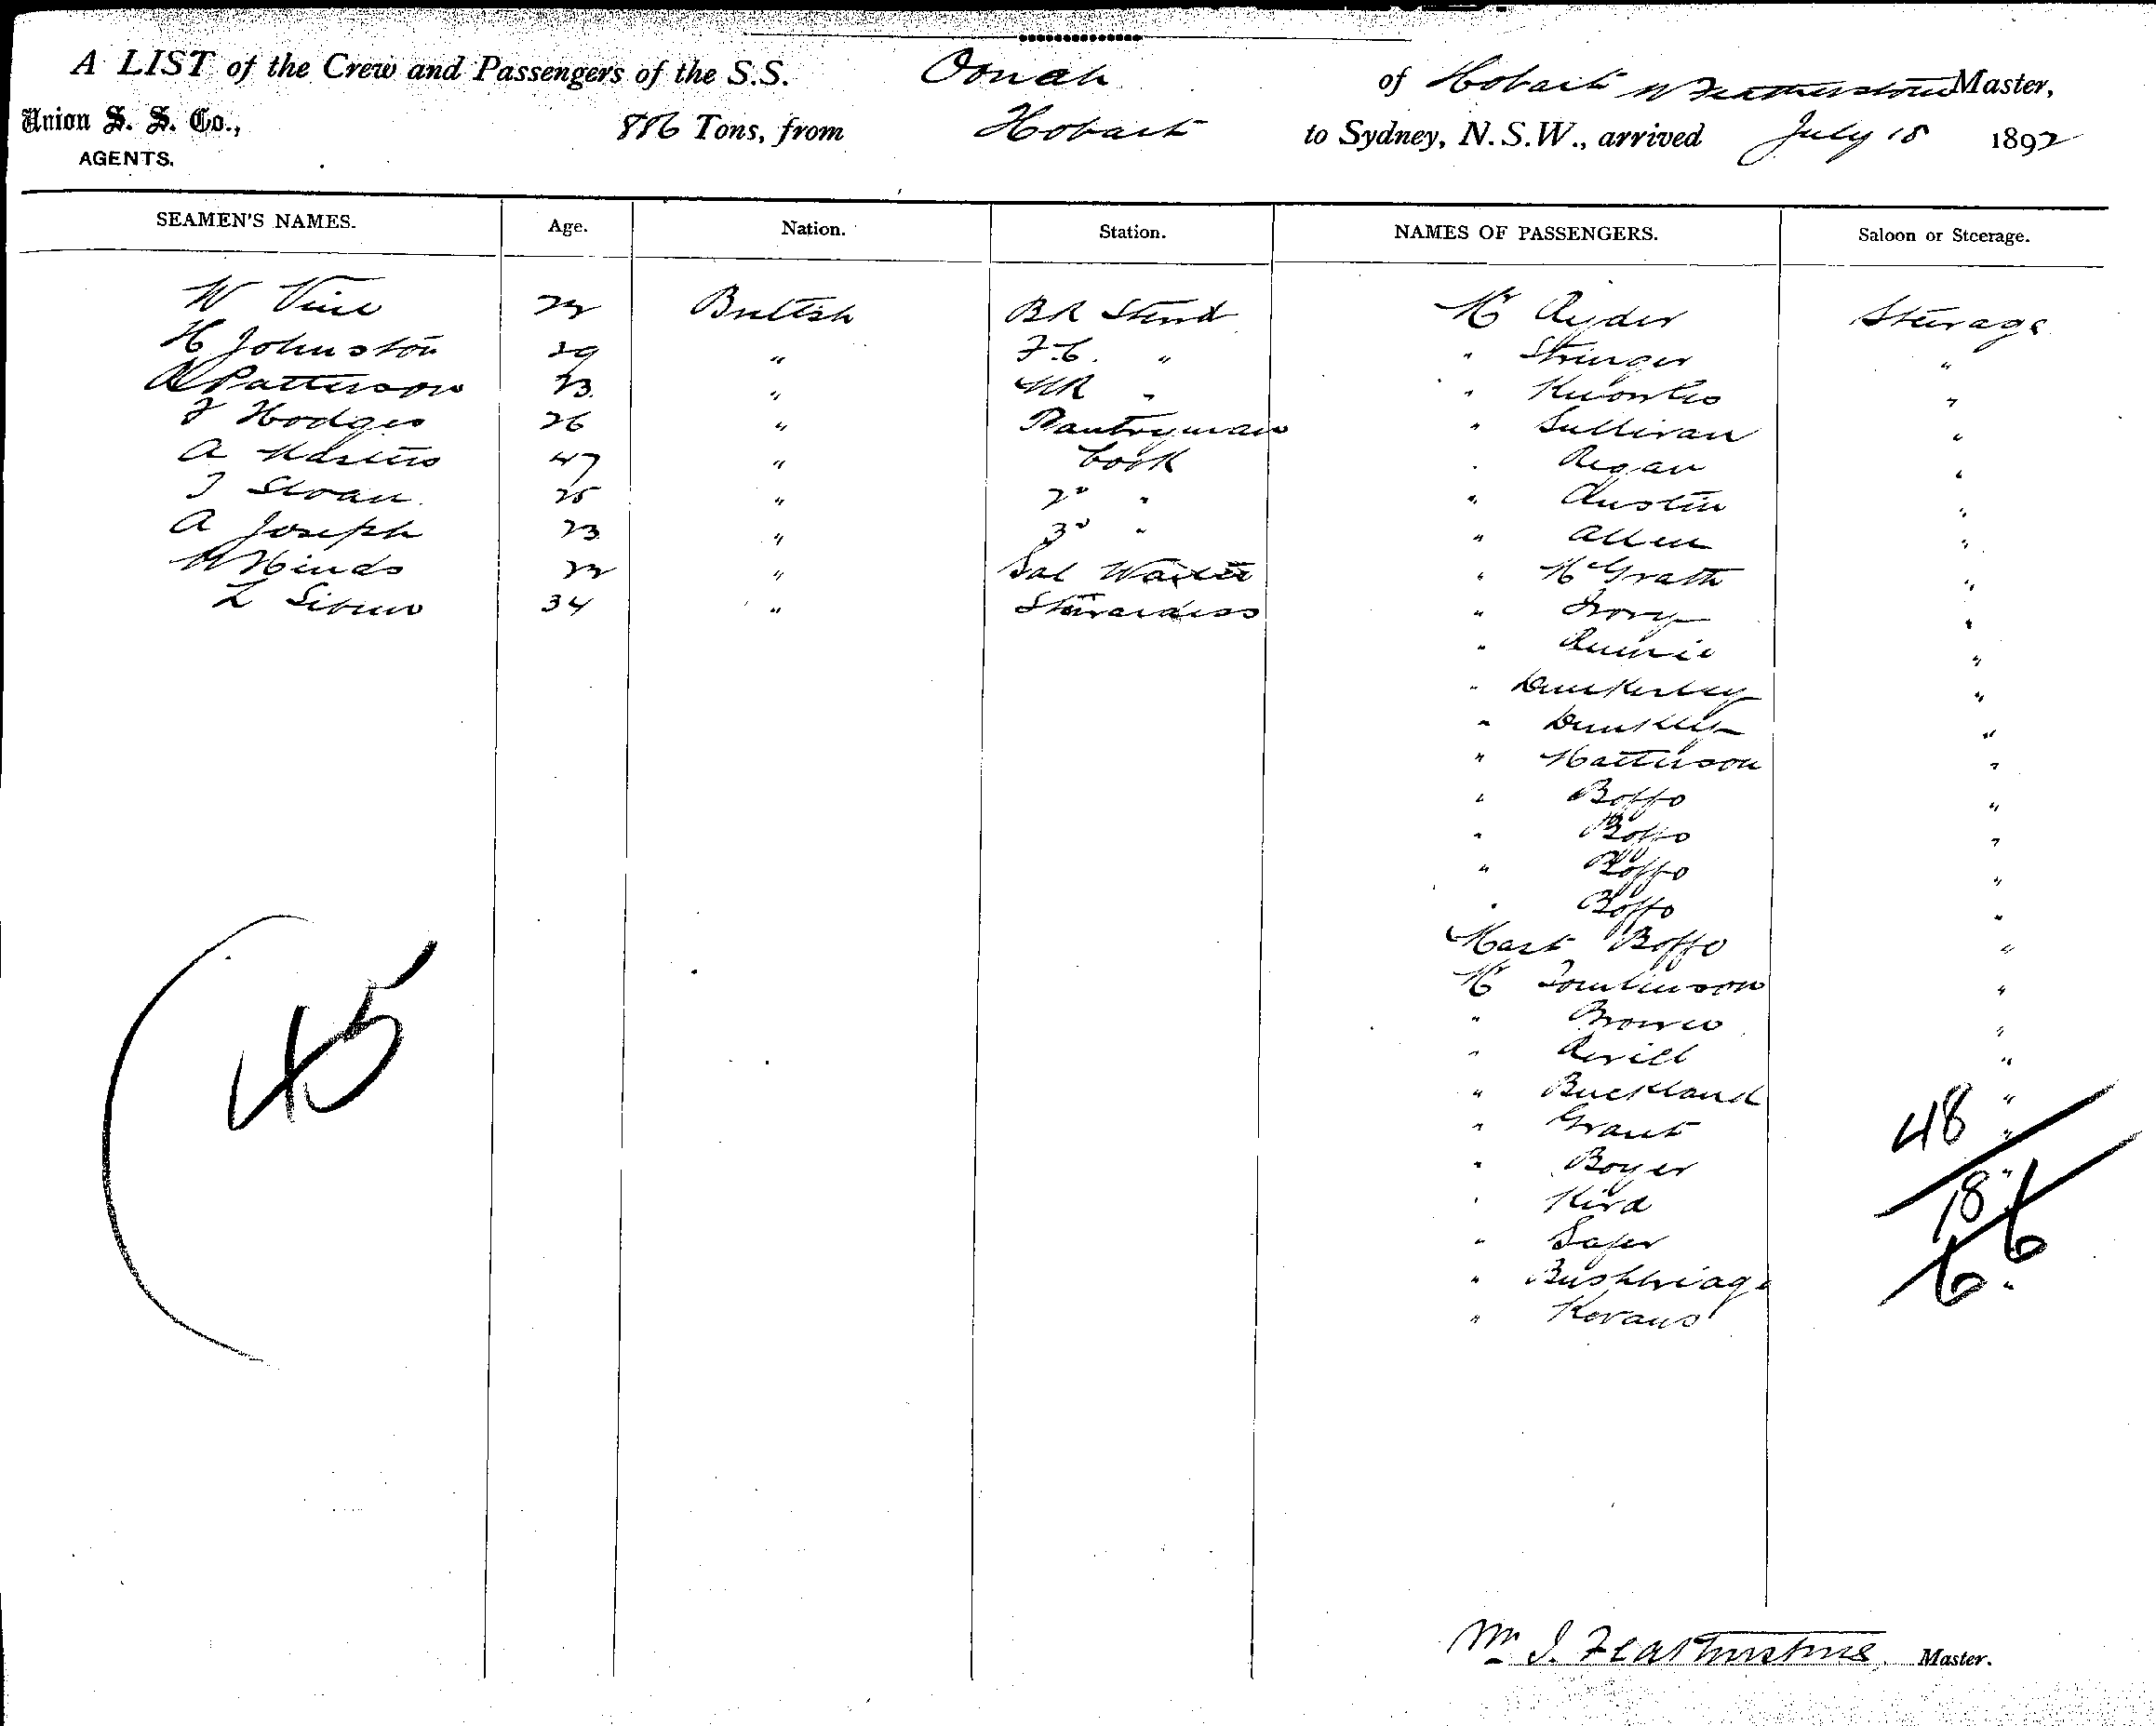 A LIST of the Crew and Passengers of the S.S. Oonah of Hobart W Featherstone Master,
Union S. S. Co., 886 Tons, from Hobart to Sydney, N.S.W., arrived July 18 1892
AGENTS.
SEAMEN'S NAMES. Age. Nation. Station. NAMES OF PASSENGERS. Saloon or Steerage.
W Vine 22 British BR Stewd Mr Ryder Steerage
H Johnston 29 " F.C. " " Stringer "
A Patterson 23 " MR " " Knowles "
F Hodges 26 " Pantryman " Sullivan "
A Masters 47 " Cook " Regan "
J Sloan 25 " 2d " " Austin "
A Joseph 23 " 3d " " Allen "
W Hinds 22 " Sal Waiter " McGrath "
L Stewardess 34 " " Ivory "
" Rennie "
" Dunkerley "
" Dunkley "
" Matterson "
" Boffo "
" Boffo "
" Boffo "
" Boffo "
Mast Boffo "
Mr Tomlinson "
" Brown "
" Revill "
" Buckland "
" Grant "
" Boyer "
" Kird
"
" Bushbridge "
" Kevans
45
48
18
66
Wm J. Featherstone Master.